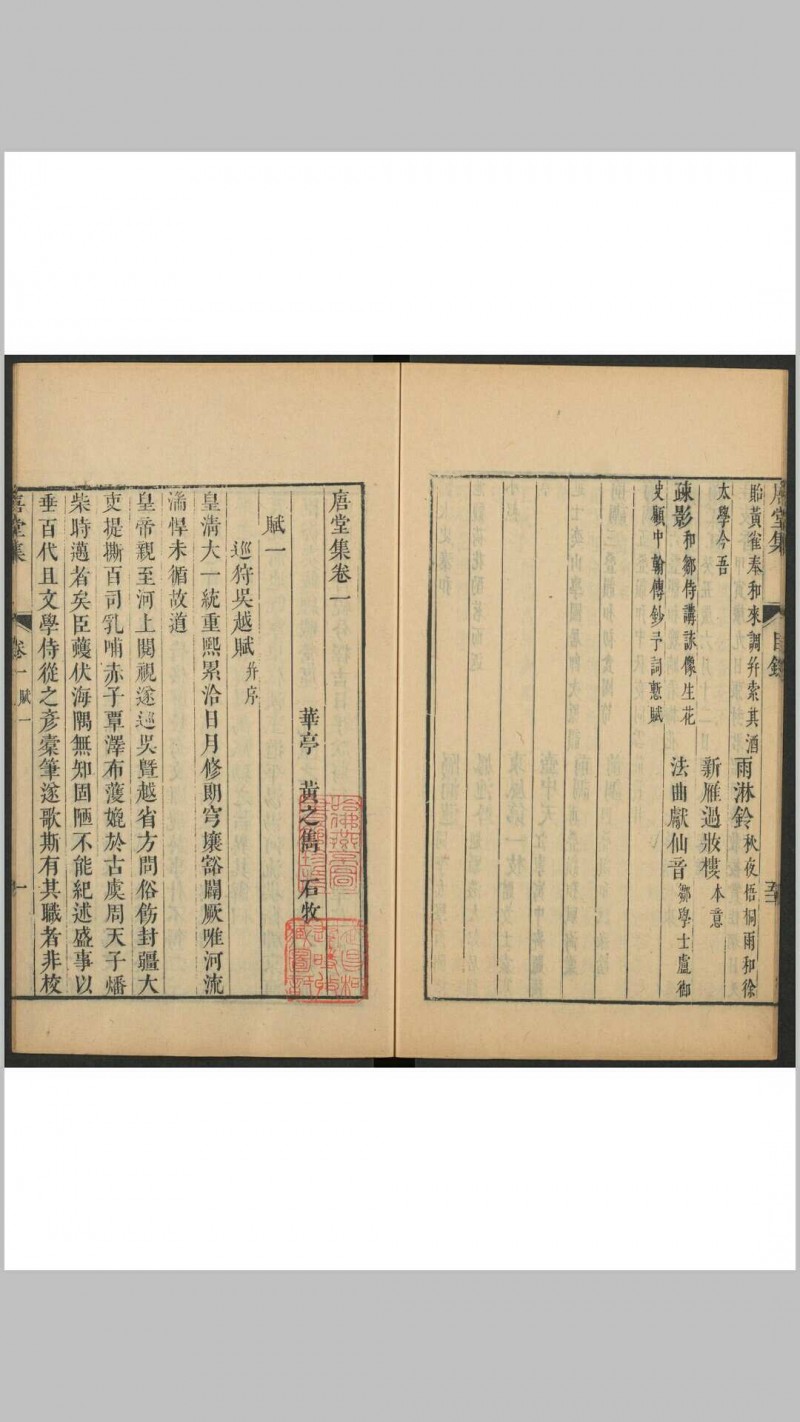 貽黃雀奉和來調幷索其酒 雨淋鈴秋夜梧桐雨和徐
太學今吾 新雁過妝樓本意
疎影和鄒侍講詠像生花 法曲獻仙音鄒學士盧御
史顧中翰傳鈔予詞慙賦
𢈪堂集 目錄
𢈪堂集卷一
華亭 黃之雋 石牧
賦一
巡狩吳越賦幷序
皇淸大一統重熙累洽日月修朗穹壤豁闢厥唯河流
湍悍未循故道
皇帝親至河上閱視遂巡吳曁越省方問俗飭封疆大
吏提撕百司乳哺赤子覃澤布濩媲於古虞周天子燔
柴時邁者矣臣蠖伏海隅無知固陋不能紀述盛事以
垂百代且文學侍從之彥橐筆遂歌斯有其職者非校
𢈪堂集 卷一 賦一 一